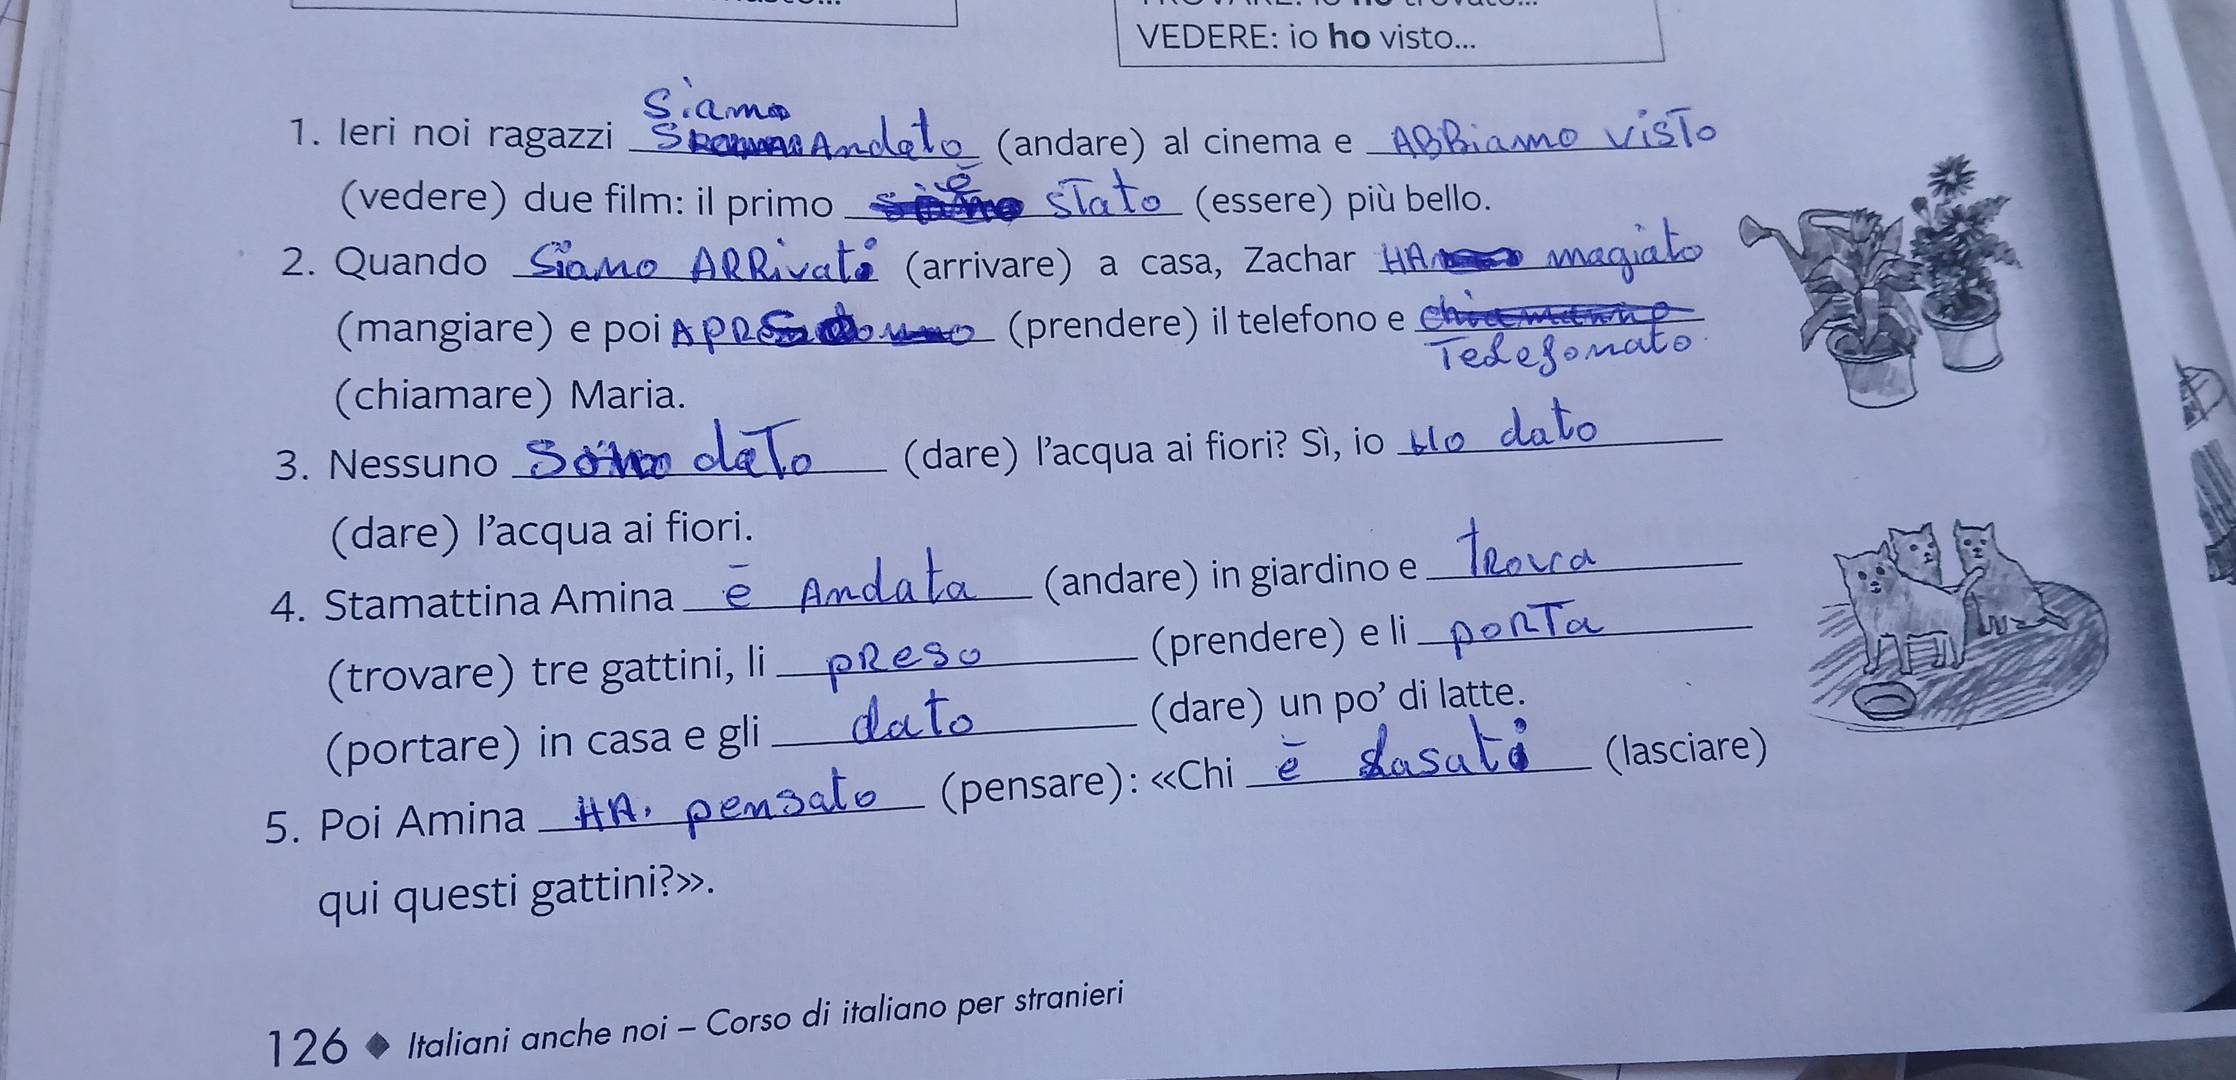 VEDERE: io ho visto...
Siamo
1. Ieri noi ragazzi Andato (andare) al cinema e ABBiamo visTo
(vedere) due film: il primo è sTato (essere) più bello.
2. Quando Siamo ARRivati (arrivare) a casa, Zachar HA magiato
(mangiare) e poi (prendere) il telefono e
Telefonato
(chiamare) Maria.
3. Nessuno daTo (dare) l'acqua ai fiori? Sì, io Ho dato
(dare) l'acqua ai fiori.
4. Stamattina Amina è Andata (andare) in giardino e
(trovare) tre gattini, li pReso (prendere) e li poRTa
(portare) in casa e gli daTo (dare) un po' di latte.
5. Poi Amina HA. pensato (pensare): «Chi è (lasciare)
qui questi gattini?».
126 ◆ Italiani anche noi – Corso di italiano per stranieri